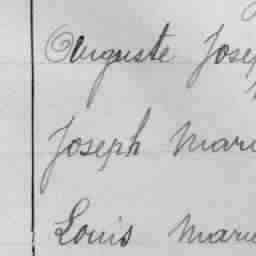 Auguste Josep
Joseph Marie
Louis Marie